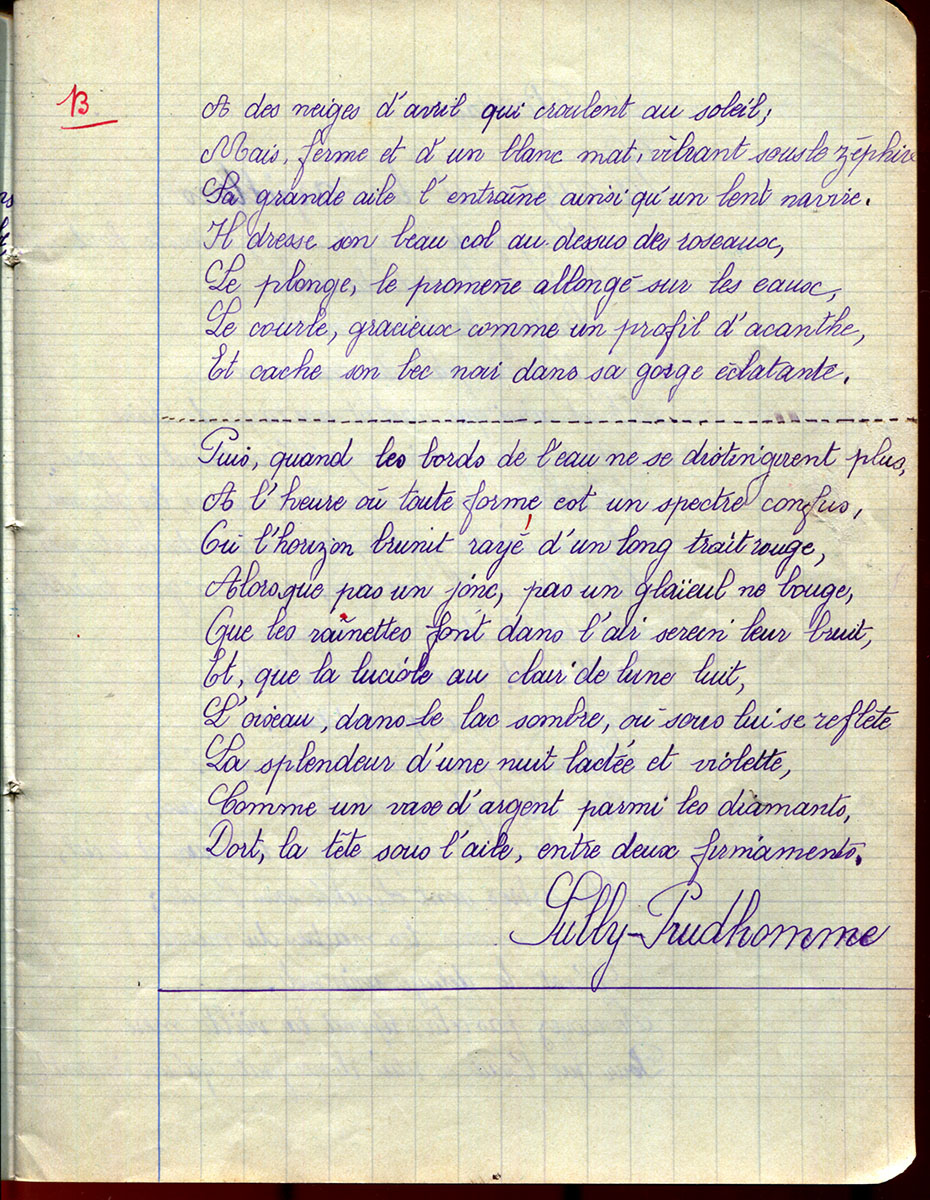 B
A des neiges d'avril qui croulent au soleil;
Mais, ferme et d'un blanc mat, vibrant sous le zéphire
Sa grande aile l'entraîne ainsi qu'un lent navire.
Il dresse son beau col au dessus des roseaux,
Le plonge, le promène allongé sur les eaux,
Le courbe, gracieux comme un profil d'acanthe,
Et cache son bec noir dans sa gorge éclatante.
Puis, quand les bords de l'eau ne se distinguent plus,
A l'heure où toute forme est un spectre confus,
Où l'horizon brunit rayé d'un long trait rouge,
Alors que pas un jonc, pas un glaïeul ne bouge,
Que les rainettes font dans l'air serein leur bruit,
Et, que la luciole au clair de lune luit,
L'oiseau, dans le lac sombre, où sous lui se reflète
La splendeur d'une nuit lactée et violette,
Comme un vase d'argent parmi les diamants,
Dort, la tête sous l'aile, entre deux firmaments.
Sully-Prudhomme